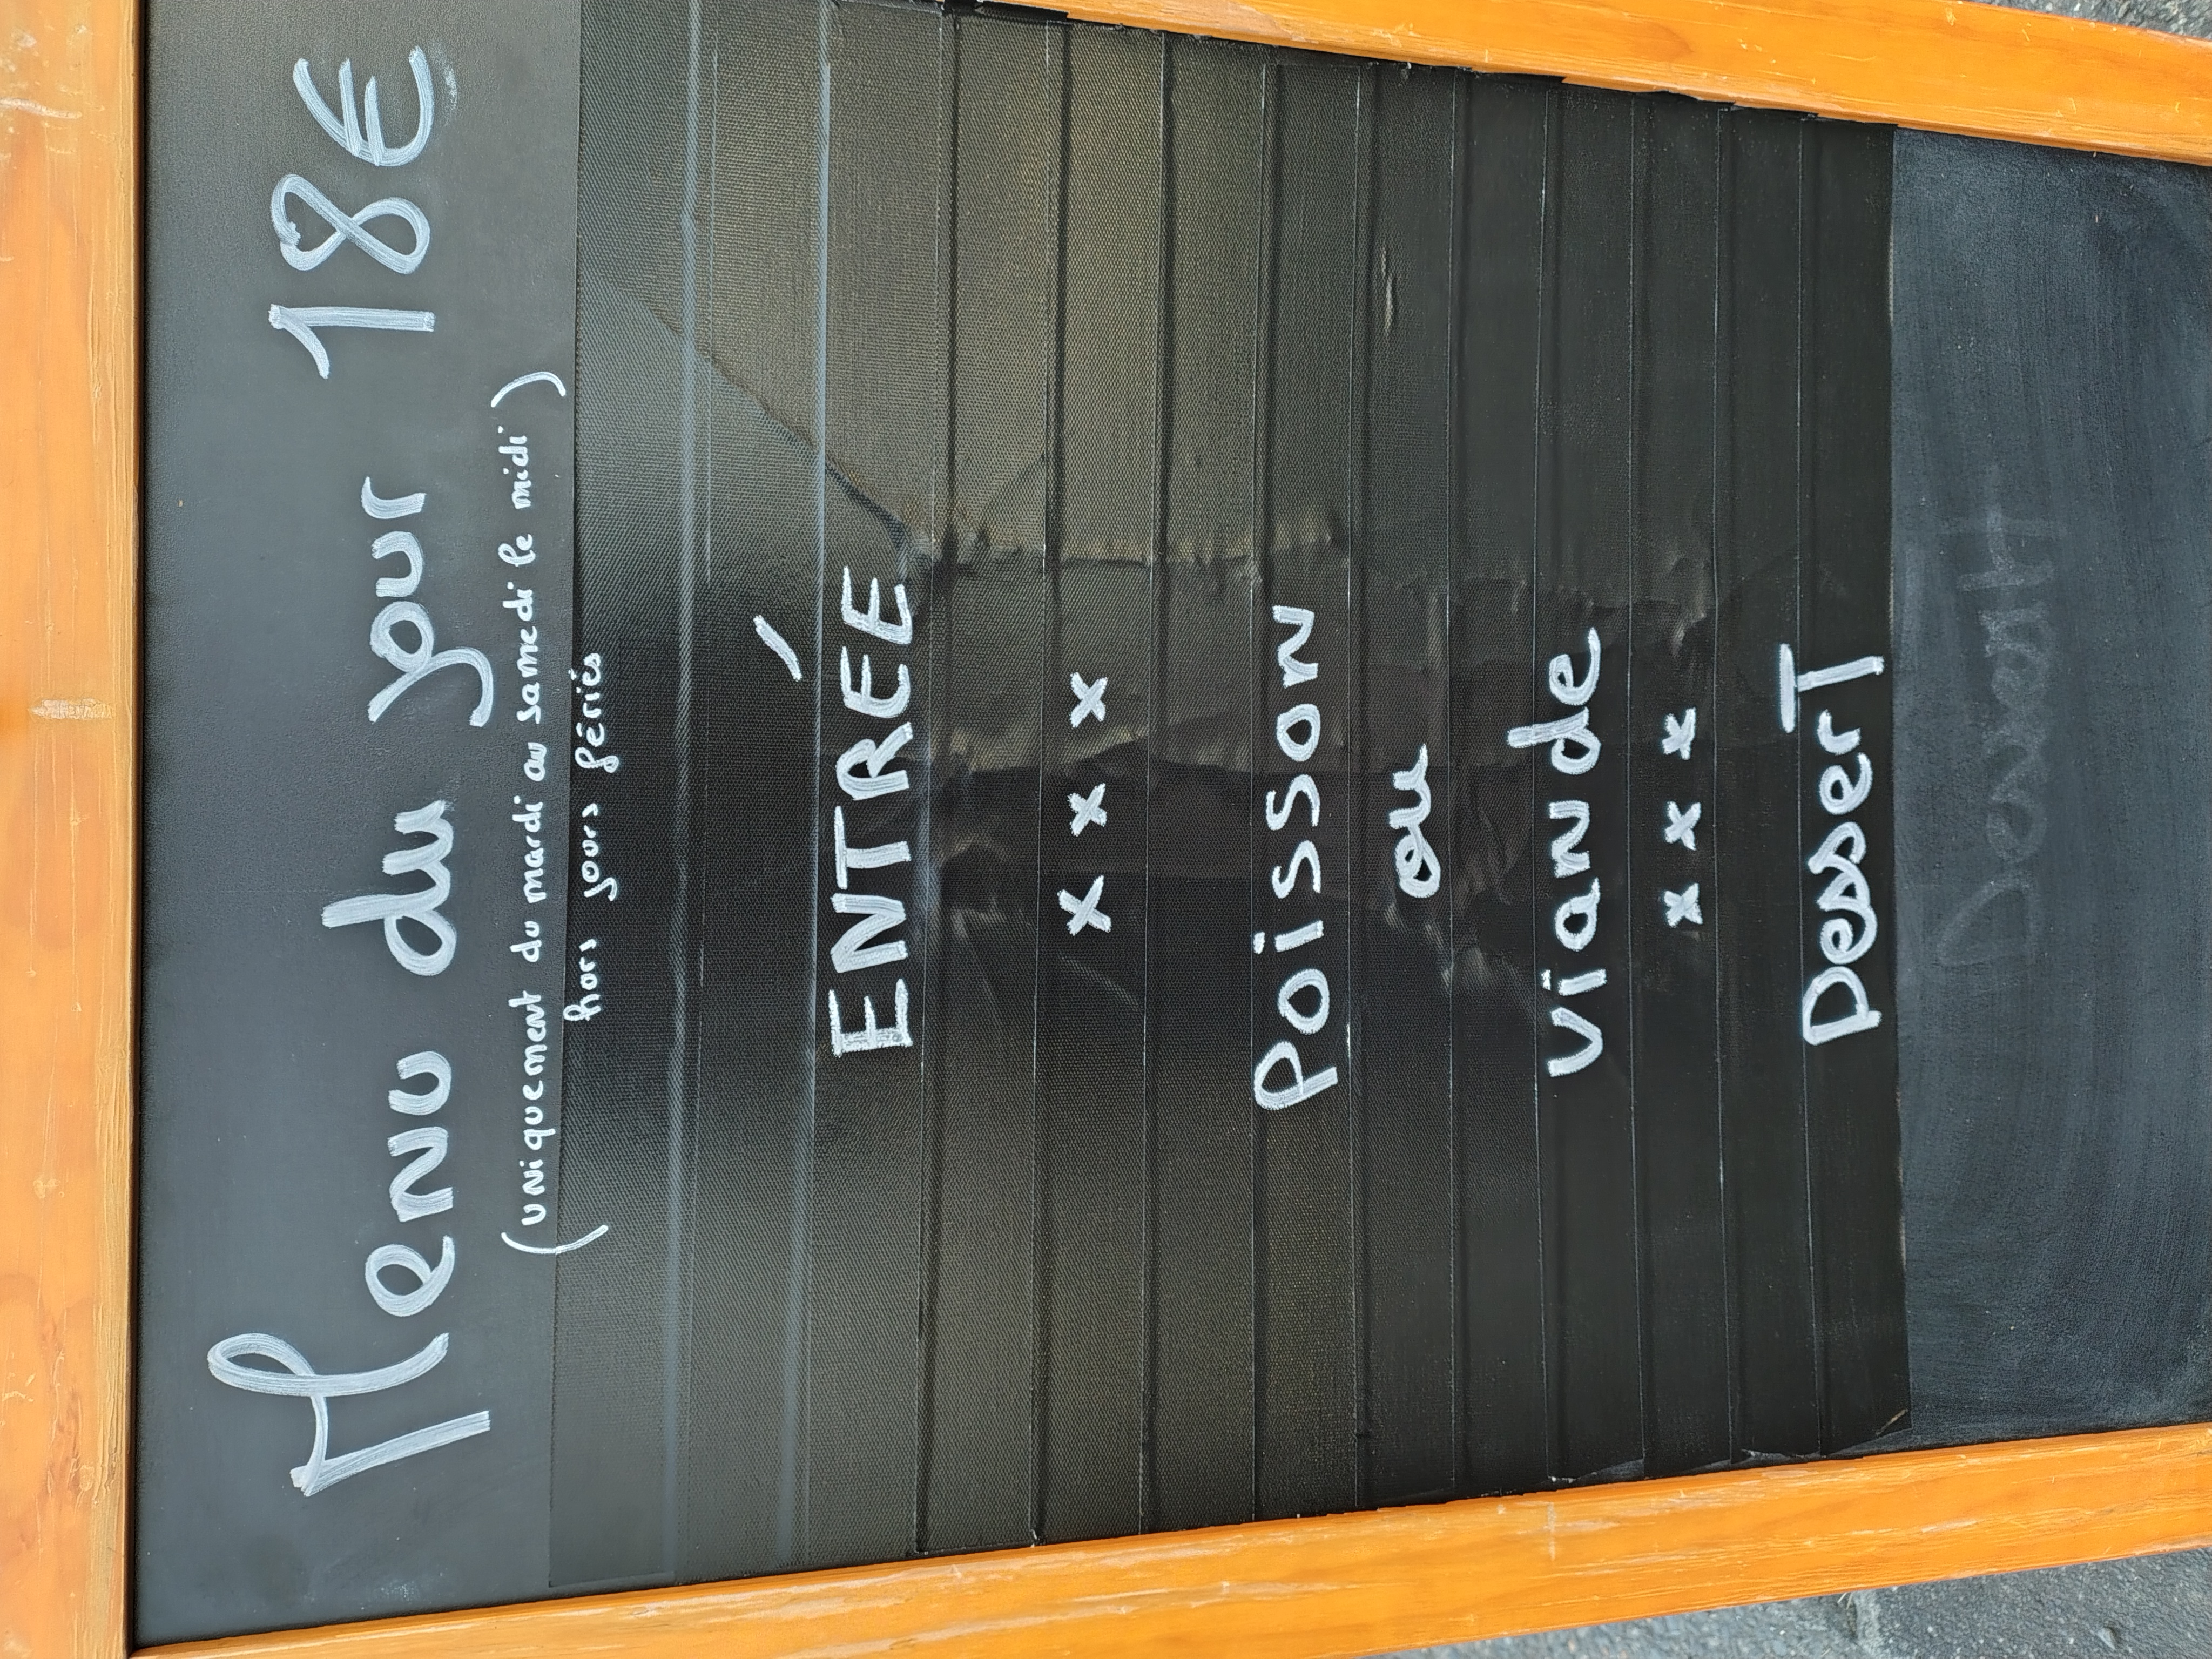 Menu du jour 18€
(uniquement du mardi au samedi le midi)
hors jours fériés
ENTRÉE
x x x
Poisson
ou
viande
x x x
DesserT